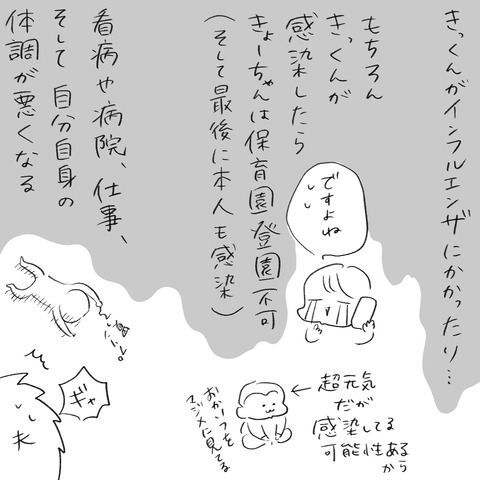 きっくんがインフルエンザにかかったり…
もちろん
きっくんが
感染したら
きょーちゃんは保育園登園不可
（そして最後に本人も感染）
看病や病院、仕事、
そして自分自身の
体調が悪くなる
ですよね
←超元気
だが
感染してる
可能性ある
から
おかいつを
マジメに見てる
ギャ
夫